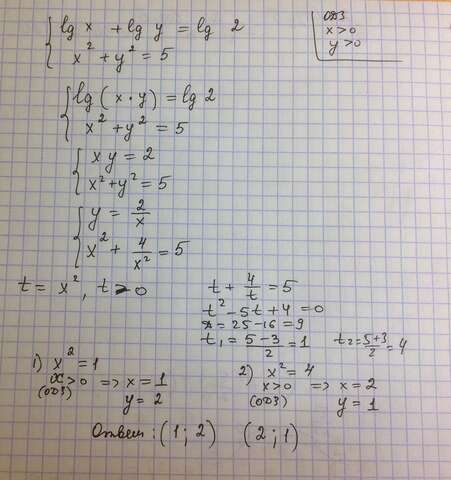 lg x + lg y = lg 2
x² + y² = 5
ОДЗ
x>0
y>0
lg(x·y) = lg 2
x² + y² = 5
xy = 2
x² + y² = 5
y = 2/x
x² + 4/x² = 5
t = x², t > 0
t + 4/t = 5
t² - 5t + 4 = 0
= 25 - 16 = 9
t₁ = (5-3)/2 = 1 t₂ = (5+3)/2 = 4
1) x² = 1
x>0 => x = 1
(ОДЗ) y = 2
2) x² = 4
x>0 => x = 2
(ОДЗ) y = 1
Ответ: (1; 2) (2; 1)